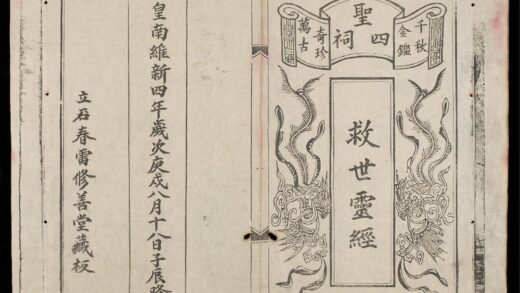 千秋
金鑑
四聖祠
奇珍
萬古
救世靈經
皇南維新四年歲次庚戌八月十八日子辰
立石春雷修善堂藏板